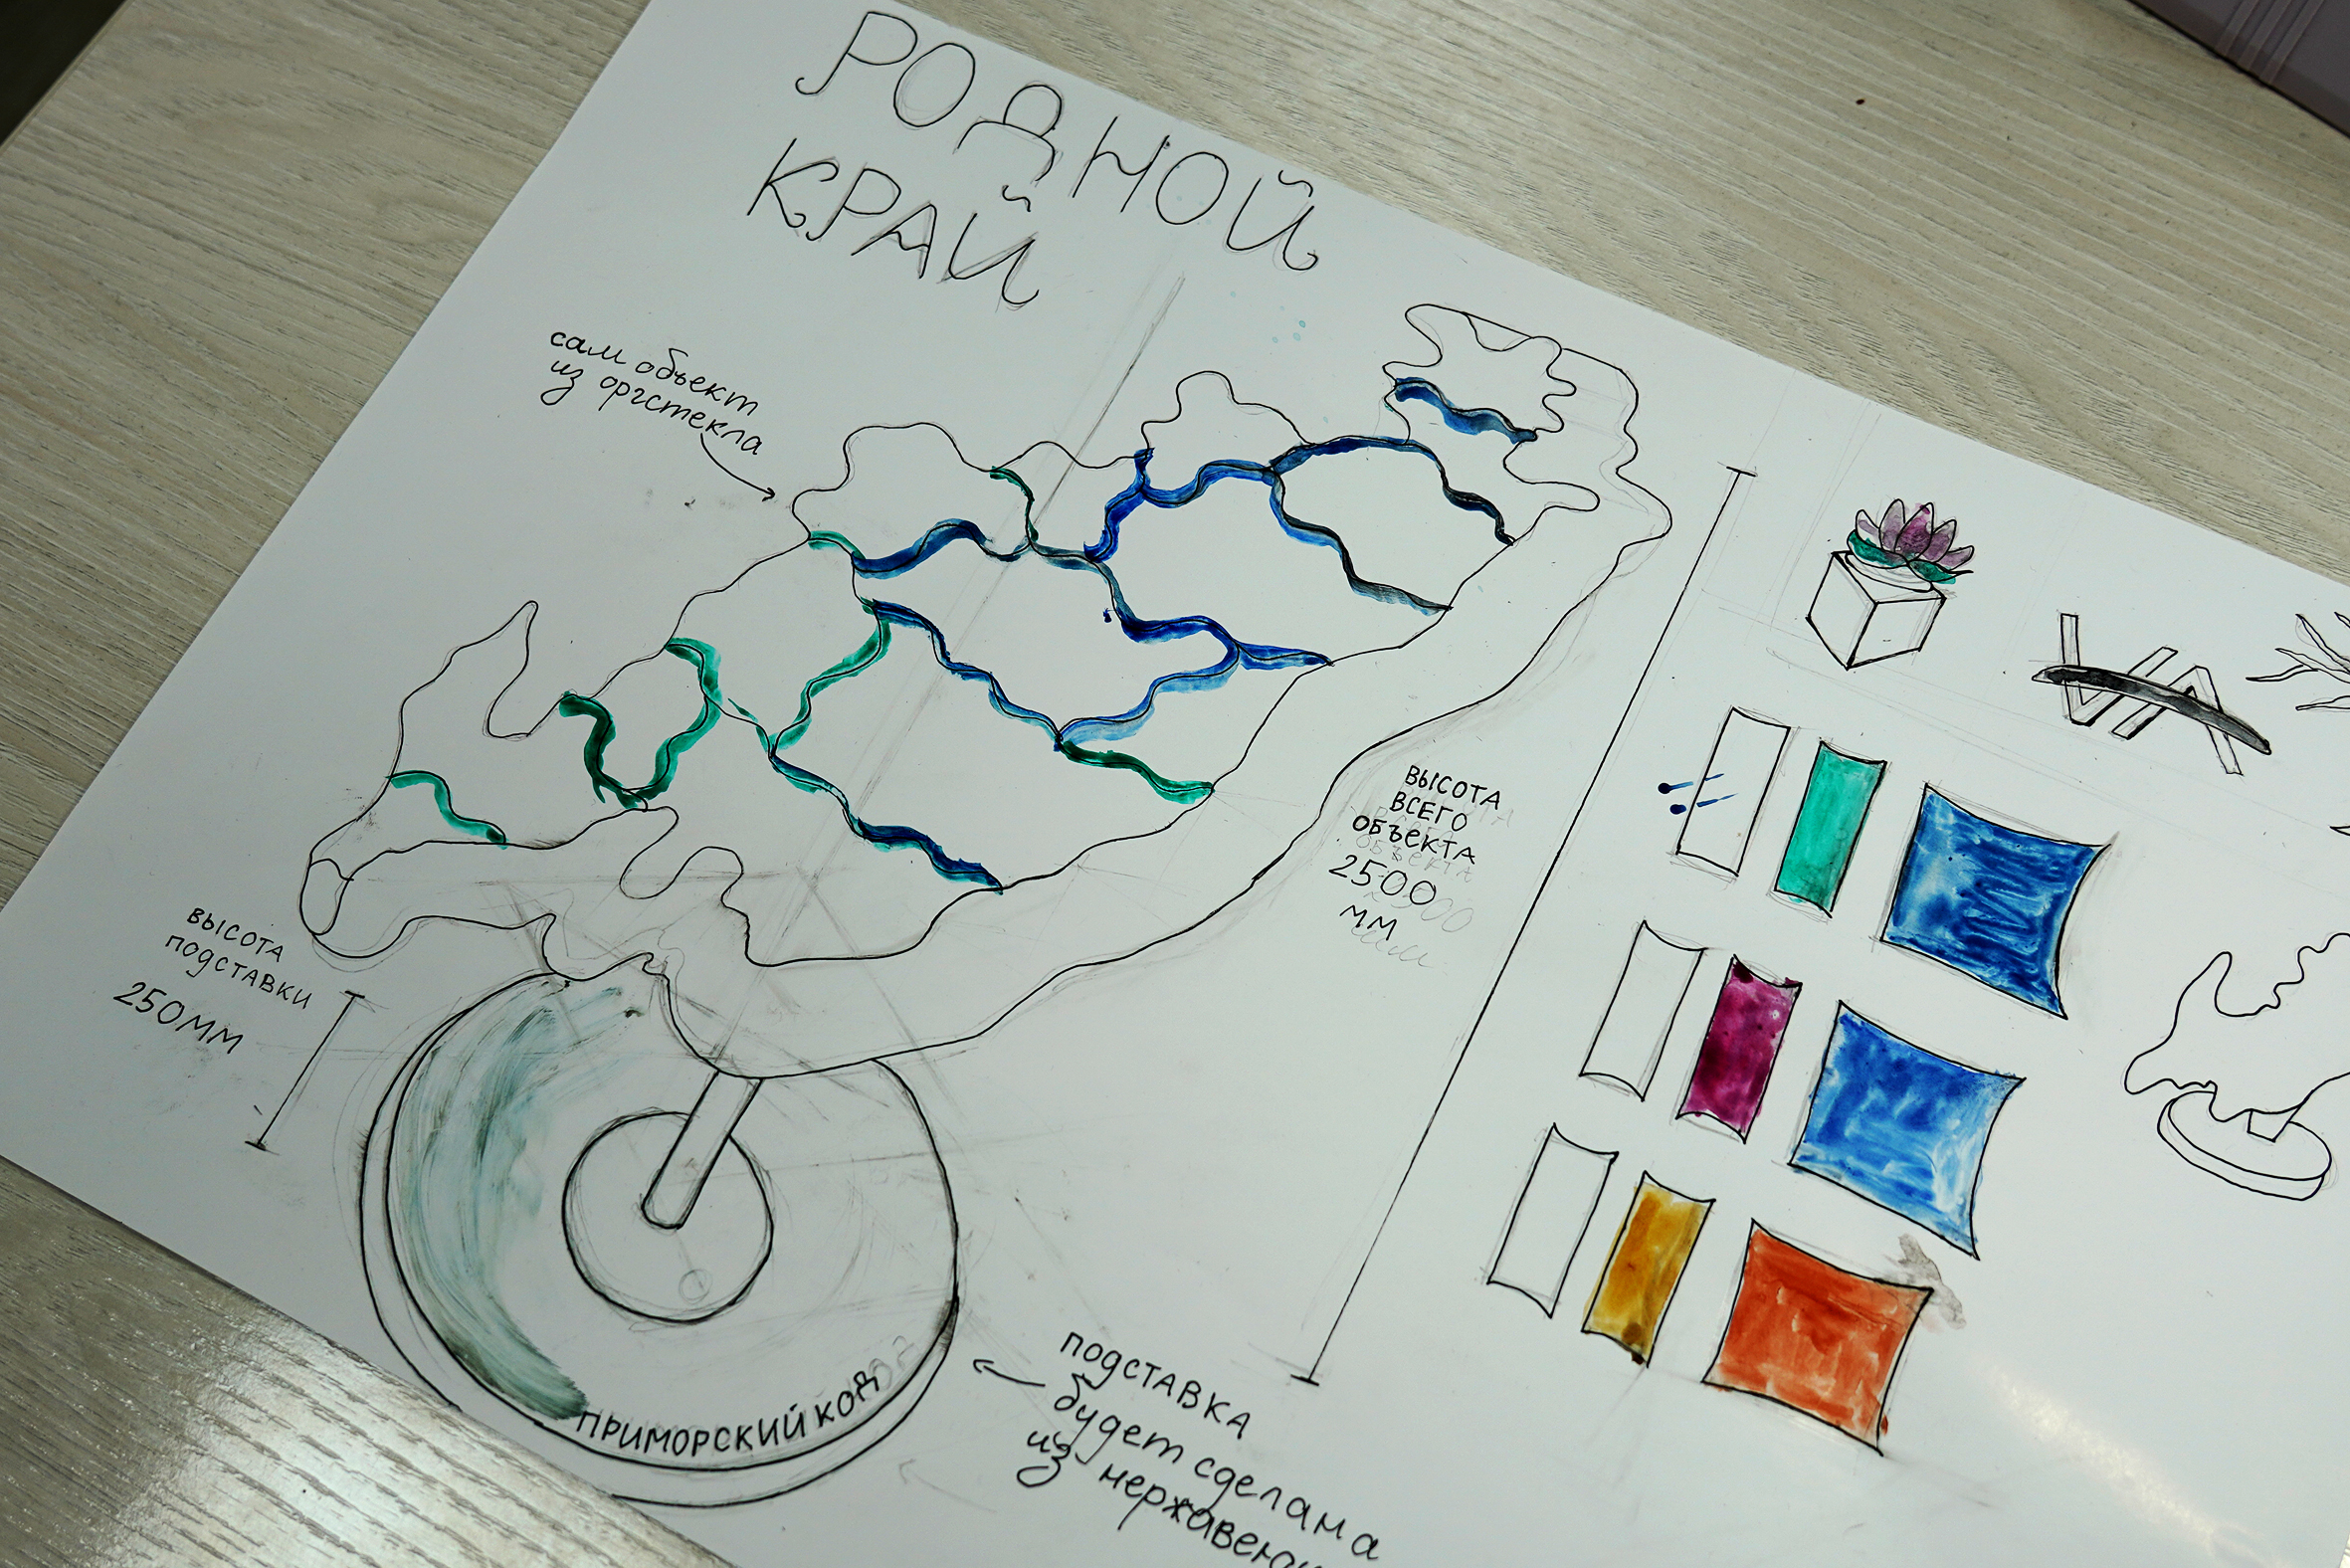 РОДНОЙ
КРАЙ
сам объект
из оргстекла
высота
подставки
250мм
высота
всего
объекта
2500
мм
ПРИМОРСКИЙ КОД
подставка
будет сделана
из